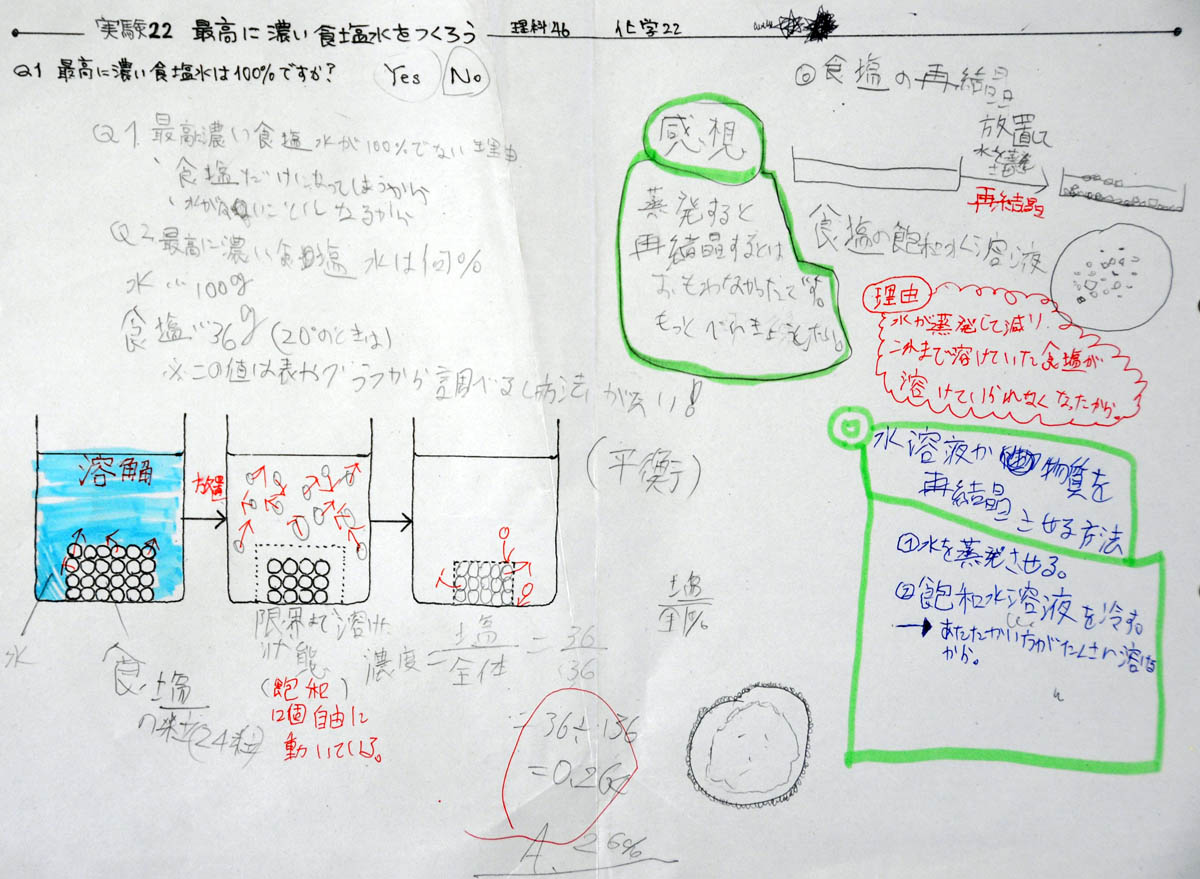 実験22 最高に濃い食塩水をつくろう 理科46 化学22
Q1 最高に濃い食塩水は100%ですか? Yes No
Q1 最高濃い食塩水が100%でない理由
食塩だけになってしまうから
Q2 最高に濃い食塩水は何%
水…100g
食塩…36g(20°のときは)
※この値は表やグラフから調べる
溶解
放置
水
食塩
(24粒)
限界まで溶けた
状態
(飽和)
12個自由に
動いている。
(平衡)
濃度=塩/全体=36/136
=36÷136
=0.26
A. 26%
塩
全体
感想
蒸発すると
再結晶するとは
おもわなかったです。
もっと
◎食塩の再結晶
放置して
水を蒸発
再結晶
食塩の飽和水溶液
理由
水が蒸発して減り
これまで溶けていた食塩が
溶けていられなくなったから。
水溶液から物質を
再結晶させる方法
①水を蒸発させる。
②飽和水溶液を冷す。
→あたたかい方がたくさん溶ける
から。